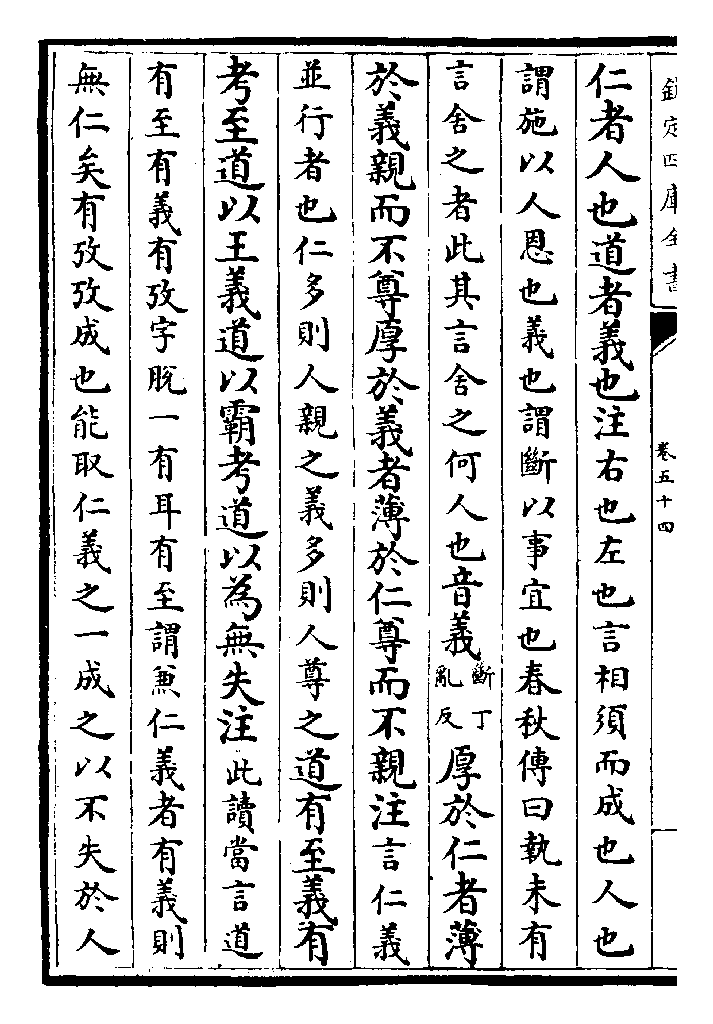 欽定四庫全書
卷五十四
仁者人也道者義也注右也左也言相須而成也人也
謂施以人恩也義也謂斷以事宜也春秋傳曰執未有
言舍之者此其言舍之何人也音義斷丁亂反厚於仁者薄
於義親而不尊厚於義者薄於仁尊而不親注言仁義
並行者也仁多則人親之義多則人尊之道有至義有
考至道以王義道以霸考道以為無失注此讀當言道
有至有義有攷字脫一有耳有至謂兼仁義者有義則
無仁矣有攷攷成也能取仁義之一成之以不失於人